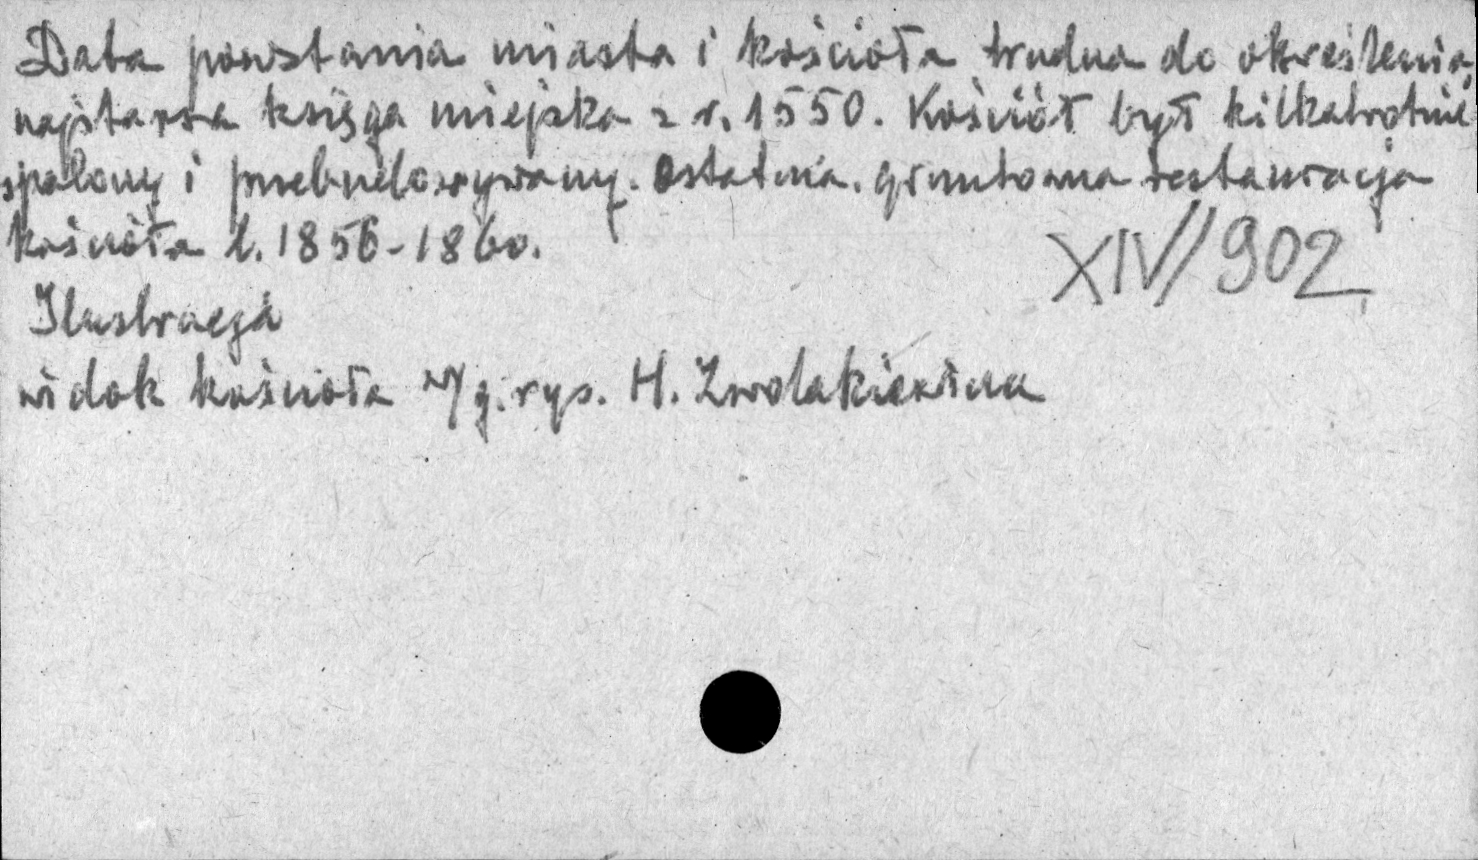 Data powstania miasta i kościoła trudna do określenia,
najstarsza księga miejska z r. 1550. Kościół był kilkakrotnie
spalony i przebudowywany. Ostatnia gruntowna restauracja
kościoła l. 1856-1860.
XIV/902
Ilustracja
widok kościoła w/g. rys. H. Zwolakiewicza